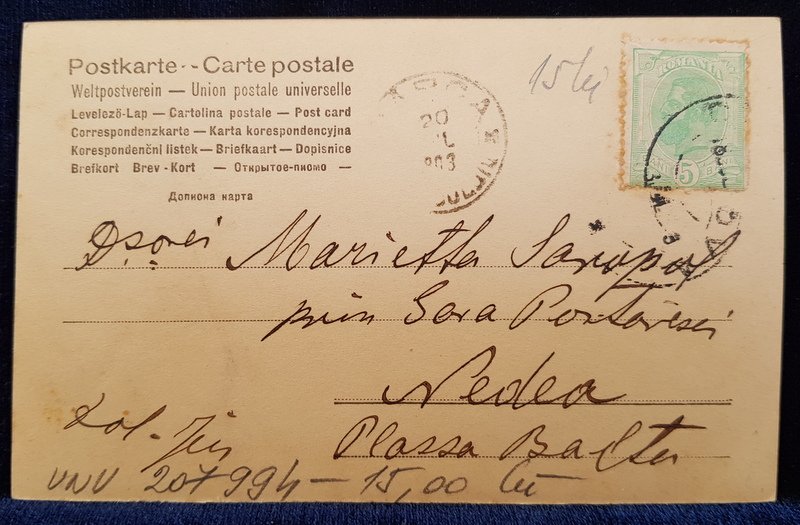 Postkarte - - Carte postale
Weltpostverein — Union postale universelle
Levelező-Lap — Cartolina postale — Post card
Correspondenzkarte — Karta korespondencyjna
Korespondenční listek — Briefkaart — Dopisnice
Brefkort Brev-Kort — Открытое-писмо —
Дописна карта
15 lei
ROMANIA
5
20
Dșorei Marietta Saropol
prin Gara Portărești
Nedea
Plassa Balta
Dol-Jiu
VNV 207994 — 15,00 lei